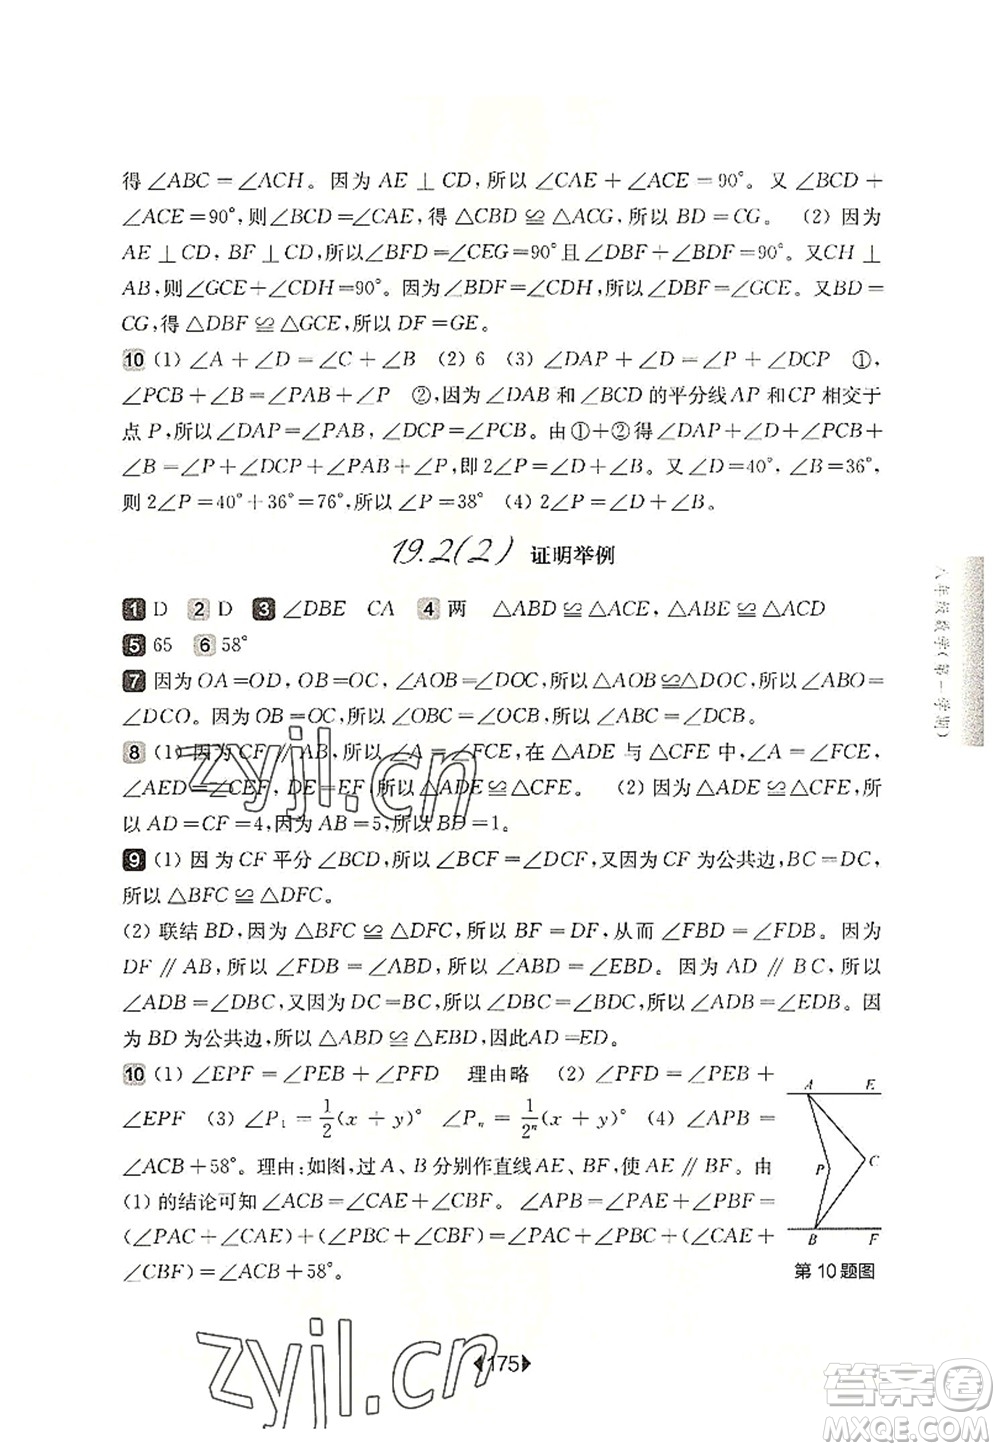 得 ∠ABC = ∠ACH。因为 AE ⊥ CD, 所以 ∠CAE + ∠ACE = 90°。又 ∠BCD +
∠ACE = 90°, 则 ∠BCD = ∠CAE, 得 △CBD ≌ △ACG, 所以 BD = CG。 (2) 因为
AE ⊥ CD, BF ⊥ CD, 所以 ∠BFD = ∠CEG = 90° 且 ∠DBF + ∠BDF = 90°。又 CH ⊥
AB, 则 ∠GCE + ∠CDH = 90°。因为 ∠BDF = ∠CDH, 所以 ∠DBF = ∠GCE。又 BD =
CG, 得 △DBF ≌ △GCE, 所以 DF = GE。
10 (1) ∠A + ∠D = ∠C + ∠B (2) 6 (3) ∠DAP + ∠D = ∠P + ∠DCP ①,
∠PCB + ∠B = ∠PAB + ∠P ②, 因为 ∠DAB 和 ∠BCD 的平分线 AP 和 CP 相交于
点 P, 所以 ∠DAP = ∠PAB, ∠DCP = ∠PCB。由①+②得 ∠DAP + ∠D + ∠PCB +
∠B = ∠P + ∠DCP + ∠PAB + ∠P, 即 2∠P = ∠D + ∠B。又 ∠D = 40°, ∠B = 36°,
则 2∠P = 40° + 36° = 76°, 所以 ∠P = 38° (4) 2∠P = ∠D + ∠B。
19.2(2) 证明举例
1 D 2 D 3 ∠DBE CA 4 两 △ABD ≌ △ACE, △ABE ≌ △ACD
5 65 6 58°
7 因为 OA = OD, OB = OC, ∠AOB = ∠DOC, 所以 △AOB ≌ △DOC, 所以 ∠ABO =
∠DCO。因为 OB = OC, 所以 ∠OBC = ∠OCB, 所以 ∠ABC = ∠DCB。
8 (1) 因为 CF ∥ AB, 所以 ∠A = ∠FCE, 在 △ADE 与 △CFE 中, ∠A = ∠FCE,
∠AED = ∠CEF, DE = EF, 所以 △ADE ≌ △CFE。 (2) 因为 △ADE ≌ △CFE, 所
以 AD = CF = 4, 因为 AB = 5, 所以 BD = 1。
9 (1) 因为 CF 平分 ∠BCD, 所以 ∠BCF = ∠DCF, 又因为 CF 为公共边, BC = DC,
所以 △BFC ≌ △DFC。
(2) 联结 BD, 因为 △BFC ≌ △DFC, 所以 BF = DF, 从而 ∠FBD = ∠FDB。因为
DF ∥ AB, 所以 ∠FDB = ∠ABD, 所以 ∠ABD = ∠EBD。因为 AD ∥ BC, 所以
∠ADB = ∠DBC, 又因为 DC = BC, 所以 ∠DBC = ∠BDC, 所以 ∠ADB = ∠EDB。因
为 BD 为公共边, 所以 △ABD ≌ △EBD, 因此 AD = ED。
10 (1) ∠EPF = ∠PEB + ∠PFD 理由略 (2) ∠PFD = ∠PEB +
∠EPF (3) ∠P₁ = 1/2 (x + y)° ∠Pₙ = 1/2ⁿ (x + y)° (4) ∠APB =
∠ACB + 58°。理由: 如图, 过 A、B 分别作直线 AE、BF, 使 AE ∥ BF。由
(1) 的结论可知 ∠ACB = ∠CAE + ∠CBF。∠APB = ∠PAE + ∠PBF =
(∠PAC + ∠CAE) + (∠PBC + ∠CBF) = ∠PAC + ∠PBC + (∠CAE +
∠CBF) = ∠ACB + 58°。
A E
P C
B F
第 10 题图
八年级数学(第一学期)
175
zyjl.cn
zyjl.cn
答案圈
MXQE.COM